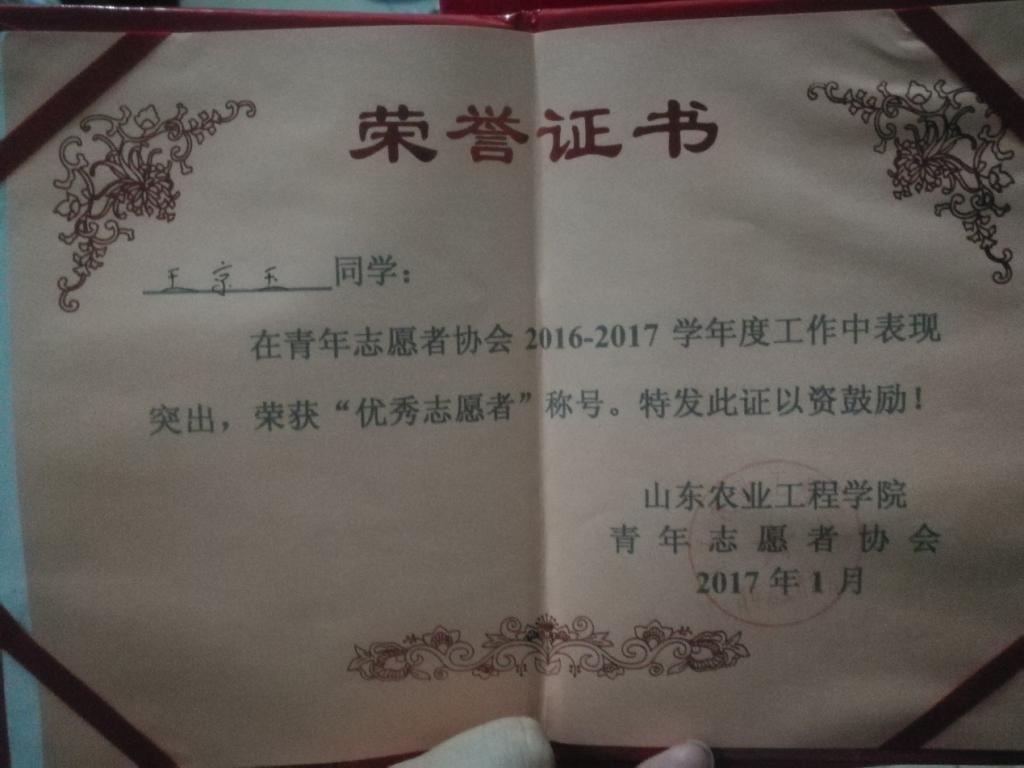 荣誉证书
王京玉同学：
在青年志愿者协会 2016-2017 学年度工作中表现
突出，荣获“优秀志愿者”称号。特发此证以资鼓励！
山东农业工程学院
青年志愿者协会
2017 年 1 月